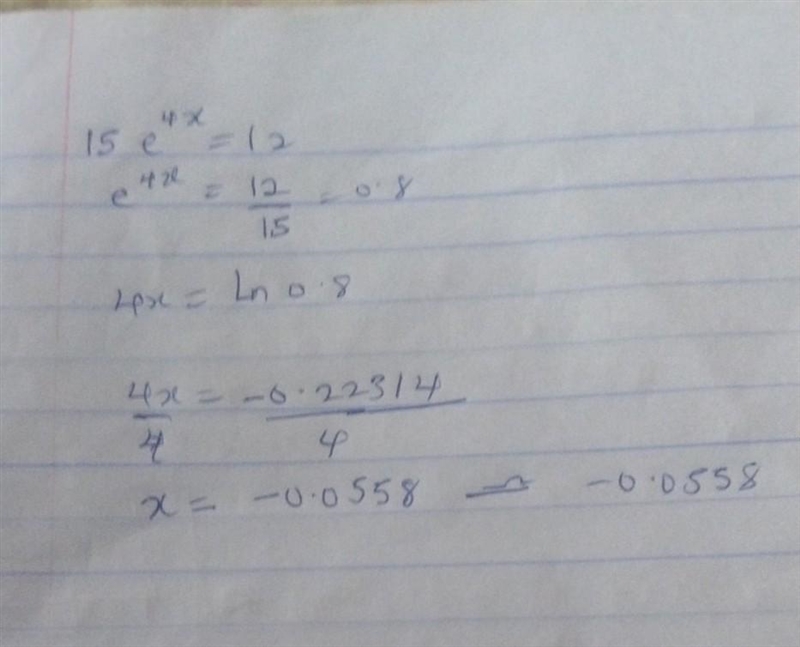 15 e^4x = 12
e^4x = 12/15 = 0.8
4x = Ln 0.8
4x/4 = -0.22314/4
x = -0.0558 ≃ -0.0558